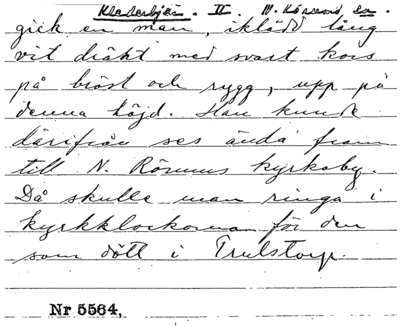 II. N. Rörums sn.
gick en man, iklädd lång
vit dräkt med svart kors
på bröst och rygg, upp på
denna höjd. Han kunde
därifrån ses ända fram
till N. Rörums kyrkoby.
Då skulle man ringa i
kyrkklockorna för den
som dött i Trulstorp.
Nr 5564,